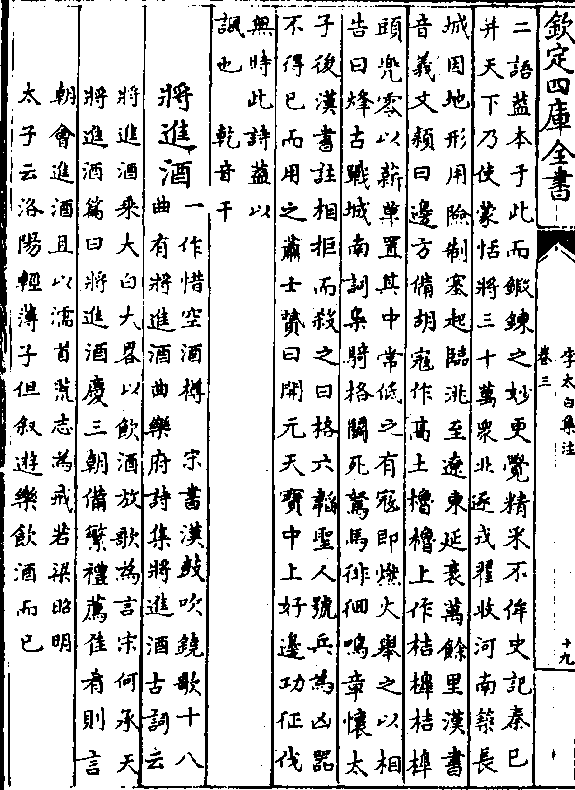 欽定四庫全書
李太白集注
卷三
十九
二語葢本于此而鍛鍊之妙更覺精采不侔史記秦已
并天下乃使蒙恬將三十萬衆北逐戎翟收河南築長
城因地形用險制塞起臨洮至遼東延袤萬餘里漢書
音義文穎曰邊方備胡寇作髙土櫓櫓上作桔橰桔橰
頭兜零以薪草置其中常低之有寇即燃火舉之以相
告曰烽古戰城南詞梟騎格鬭死駑馬徘徊鳴章懷太
子後漢書註相拒而殺之曰格六韜聖人號兵為凶器
不得已而用之蕭士贇曰開元天寳中上好邊功征伐
無時此詩葢以
諷也　乾音干
將進酒
一作惜空酒樽　宋書漢鼓吹鐃歌十八
曲有將進酒曲樂府詩集將進酒古詞云
將進酒乘大白大畧以飲酒放歌為言宋何承天
將進酒篇曰將進酒慶三朝備繁禮薦佳肴則言
朝會進酒且以濡首荒志為戒若梁昭明
太子云洛陽輕薄子但叙遊樂飲酒而已